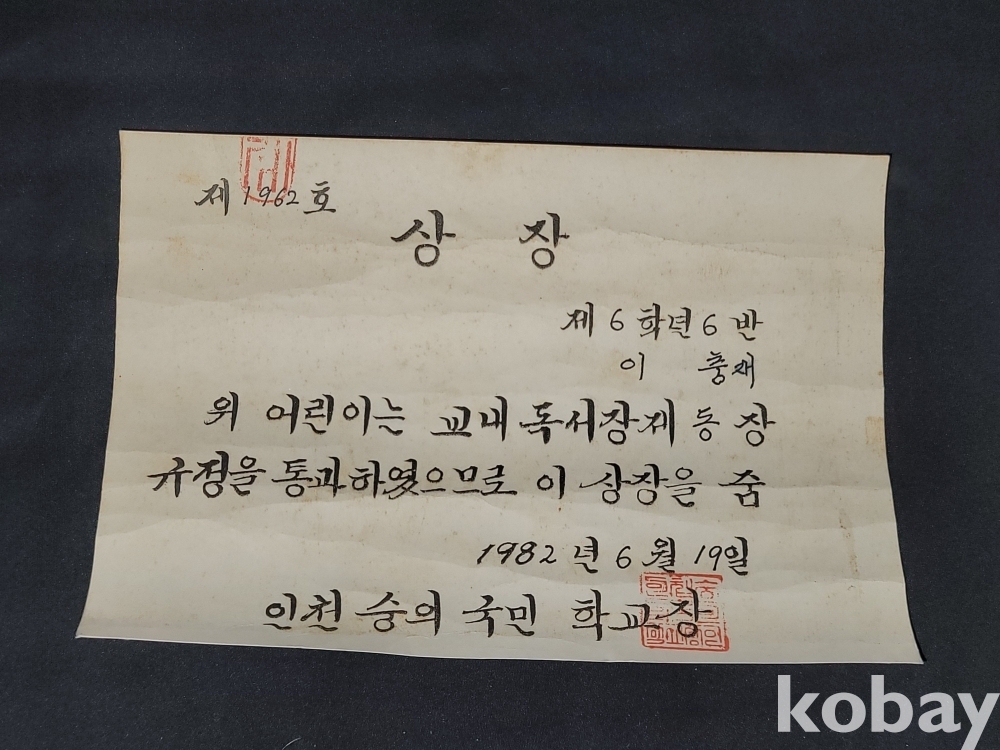 제 1962 호
상 장
제 6 학년 6 반
이 충재
위 어린이는 교내 독서장제 동장
규정을 통과하였으므로 이 상장을 줌
1982 년 6 월 19일
인천 숭의 국민 학교장
kobay